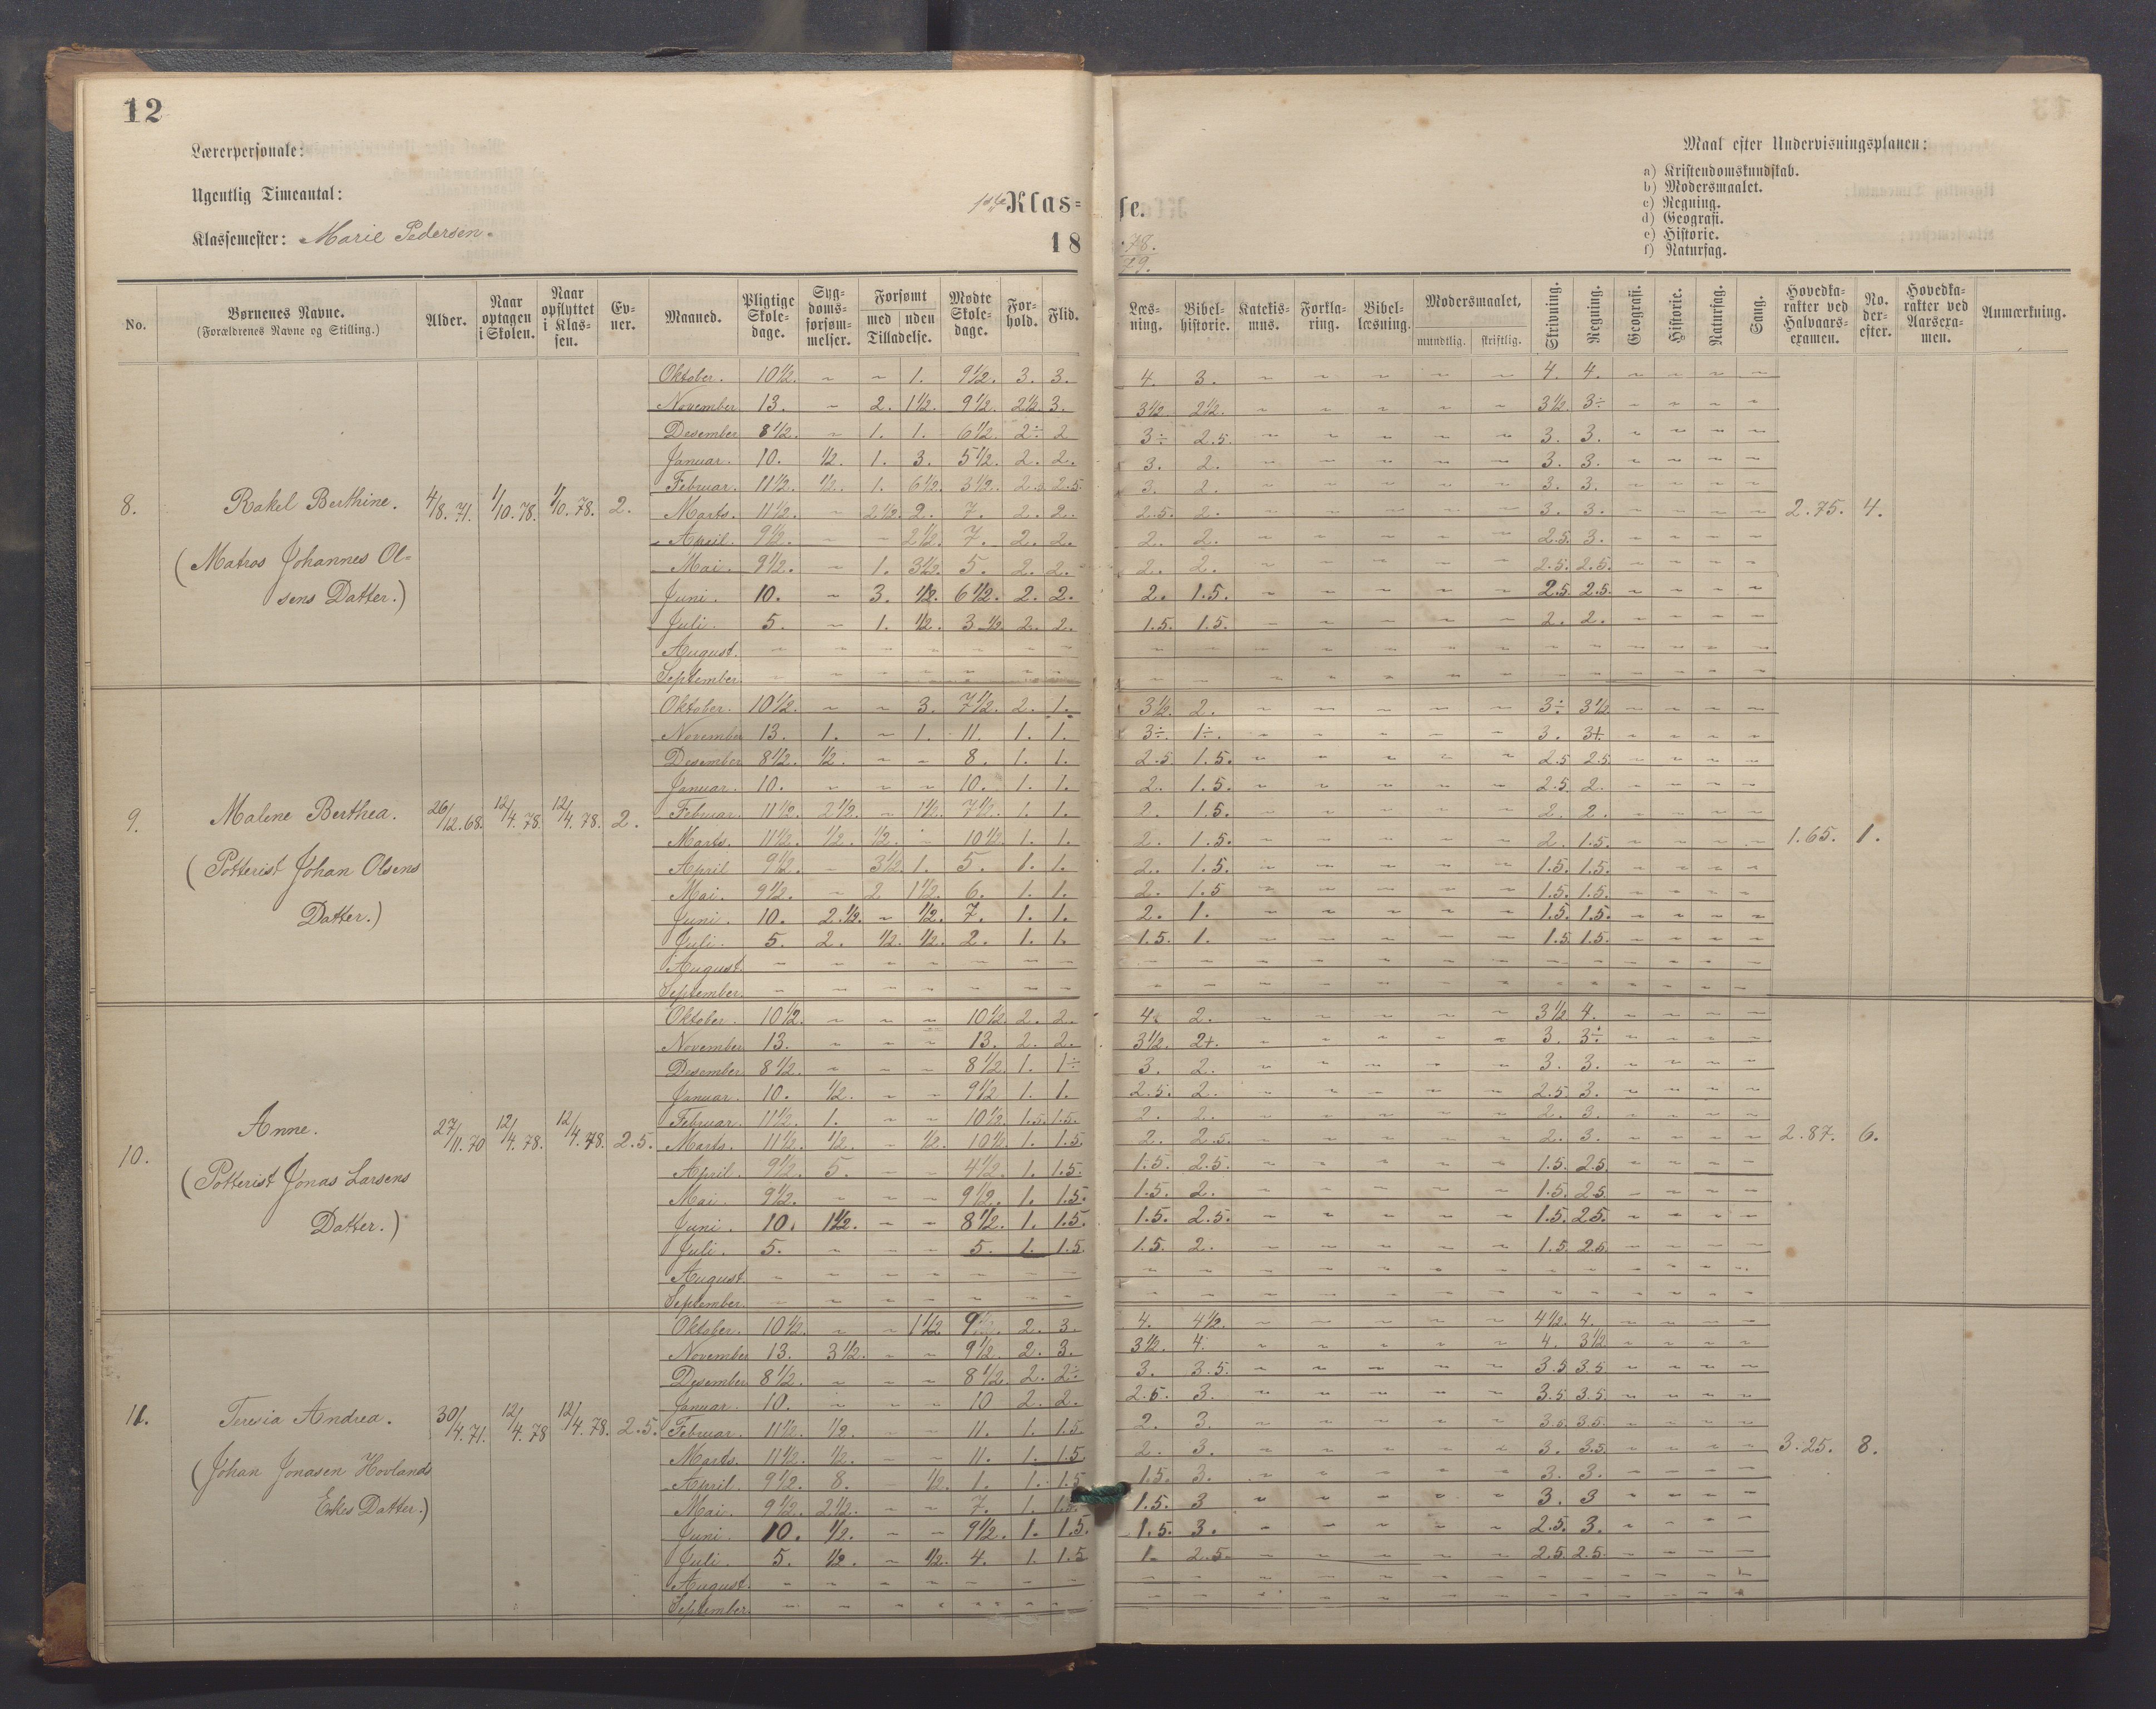 12
Lærerpersonale:
Ugentlig Timeantal:
Klassemester: Marie Pedersen.
1ste Klas= se.
18 78. 79.
Maal efter Undervisningsplanen:
a) Kristendomskundskab.
b) Modersmaalet.
c) Regning.
d) Geografi.
e) Historie.
f) Naturfag.
No. Børnenes Navne. (Forældrenes Navne og Stilling.) Alder. Naar optagen i Skolen. Naar opflyttet i Klas- sen. Ev- ner. Maaned. Pligtige Skole- dage. Syg- doms- forsøm- melser. Forsømt med uden Tilladelse. Mødte Skole- dage. For- hold. Flid. Læs- ning. Bibel- historie. Katekis- mus. Forkla- ring. Bibel- læsning. Modersmaalet, mundtlig. skriftlig. Skrivning. Regning. Geografi. Historie. Naturfag. Sang. Hovedka- rakter ved Halvaars- examen. No. der- efter. Hovedka- rakter ved Aarsexa- men. Anmærkning.
8. Rakel Berthine. 4/8. 71. 1/10. 78. 1/10. 78. 2. 2.75. 4.
(Matros Johannes Ol=
sens Datter.)
Oktober. 10½. ~ ~ 1. 9½. 3. 3. 4. 3. ~ ~ ~ ~ ~ 4. 4. ~ ~ ~ ~
November 13. ~ 2. 1½. 9½. 2½. 3. 3½. 2½. ~ ~ ~ ~ ~ 3½. 3÷ ~ ~ ~ ~
Desember 8½. ~ 1. 1. 6½. 2÷ 2 3÷ 2.5. ~ ~ ~ ~ ~ 3. 3. ~ ~ ~ ~
Januar. 10. ½. 1. 3. 5½. 2. 2. 3. 2. ~ ~ ~ ~ ~ 3. 3. ~ ~ ~ ~
Februar. 11½. ½. 1. 6½. 3½. 2.5. 2.5. 3. 2. ~ ~ ~ ~ ~ 3. 3. ~ ~ ~ ~
Marts. 11½. ~ 2½. 2. 7. 2. 2. 2.5. 2. ~ ~ ~ ~ ~ 3. 3. ~ ~ ~ ~
April. 9½. ~ ~ 2½. 7. 2. 2. 2. 2. ~ ~ ~ ~ ~ 2.5. 3. ~ ~ ~ ~
Mai. 9½. ~ 1. 3½. 5. 2. 2. 2. 2. ~ ~ ~ ~ ~ 2.5. 2.5. ~ ~ ~ ~
Juni. 10. ~ 3. ½. 6½. 2. 2. 2. 1.5. ~ ~ ~ ~ ~ 2.5. 2.5. ~ ~ ~ ~
Juli. 5. ~ 1. ½. 3½. 2. 2. 1.5. 1.5. ~ ~ ~ ~ ~ 2. 2. ~ ~ ~ ~
August. ~ ~ ~ ~ ~ ~ ~ ~ ~ ~ ~ ~ ~ ~ ~ ~ ~ ~ ~ ~
September. ~ ~ ~ ~ ~ ~ ~ ~ ~ ~ ~ ~ ~ ~ ~ ~ ~ ~ ~ ~
9. Malene Berthea. 26/12. 68. 12/4. 78. 12/4. 78. 2. 1.65. 1.
(Potterist Johan Olsens
Datter.)
Oktober. 10½. ~ ~ 3. 7½. 2. 1. 3½. 2. ~ ~ ~ ~ ~ 3÷ 3½ ~ ~ ~ ~
November 13. 1. ~ 1. 11. 1. 1. 3÷. 1÷. ~ ~ ~ ~ ~ 3. 3+. ~ ~ ~ ~
Desember 8½. ½. ~ ~ 8. 1. 1. 2.5 1.5. ~ ~ ~ ~ ~ 2.5 2.5 ~ ~ ~ ~
Januar. 10. ~ ~ ~ 10. 1. 1. 2. 1.5. ~ ~ ~ ~ ~ 2.5. 2. ~ ~ ~ ~
Februar. 11½. 2½. ~ 1½. 7½. 1. 1. 2. 1.5. ~ ~ ~ ~ ~ 2. 2. ~ ~ ~ ~
Marts. 11½. ½. ½. ~ 10½ 1. 1. 2. 1.5. ~ ~ ~ ~ ~ 2. 1.5. ~ ~ ~ ~
April 9½. ~ 3½ 1. 5. 1. 1. 2. 1.5. ~ ~ ~ ~ ~ 1.5. 1.5. ~ ~ ~ ~
Mai. 9½. ~ 2 1½. 6. 1. 1. 2. 1.5 ~ ~ ~ ~ ~ 1.5. 1.5. ~ ~ ~ ~
Juni. 10. 2.½. ~ ½. 7. 1. 1. 2. 1. ~ ~ ~ ~ ~ 1.5. 1.5. ~ ~ ~ ~
Juli. 5. 2. ½. ½. 2. 1. 1. 1.5. 1. ~ ~ ~ ~ ~ 1.5 1.5. ~ ~ ~ ~
August. ~ ~ ~ ~ ~ ~ ~ ~ ~ ~ ~ ~ ~ ~ ~ ~ ~ ~ ~ ~
September. ~ ~ ~ ~ ~ ~ ~ ~ ~ ~ ~ ~ ~ ~ ~ ~ ~ ~ ~ ~
10. Anne. 27/11. 70 12/4. 78. 12/4. 78. 2.5. 2.87. 6.
(Potterist Jonas Larsens
Datter.)
Oktober. 10½. ~ ~ ~ 10½. 2. 2. 4. 2. ~ ~ ~ ~ ~ 3½ 4. ~ ~ ~ ~
November 13. ~ ~ ~ 13. 2. 2. 3½. 2+. ~ ~ ~ ~ ~ 3. 3÷ ~ ~ ~ ~
Desember 8½. ~ ~ ~ 8½. 1. 1÷ 3. 2. ~ ~ ~ ~ ~ 3. 3. ~ ~ ~ ~
Januar. 10. ½. ~ ~ 9½ 1. 1. 2.5. 2. ~ ~ ~ ~ ~ 2.5 3. ~ ~ ~ ~
Februar. 11½. 1. ~ ~ 10½ 1.5. 1.5. 2. 2. ~ ~ ~ ~ ~ 2. 3. ~ ~ ~ ~
Marts. 11½. ½. ~ ½. 10½ 1. 1.5 2. 2.5. ~ ~ ~ ~ ~ 2. 3. ~ ~ ~ ~
April. 9½. 5. ~ ~ 4½. 1. 1.5. 1.5. 2.5. ~ ~ ~ ~ ~ 1.5. 2.5 ~ ~ ~ ~
Mai. 9½. ~ ~ ~ 9½. 1. 1.5. 1.5. 2. ~ ~ ~ ~ ~ 1.5. 2.5. ~ ~ ~ ~
Juni. 10. 1½. ~ ~ 8½. 1. 1.5. 1.5. 2.5. ~ ~ ~ ~ ~ 1.5 2.5. ~ ~ ~ ~
Juli. 5. ~ ~ ~ 5. 1. 1.5. 1.5. 2. ~ ~ ~ ~ ~ 1.5. 2.5. ~ ~ ~ ~
August. ~ ~ ~ ~ ~ ~ ~ ~ ~ ~ ~ ~ ~ ~ ~ ~ ~ ~ ~ ~
September. ~ ~ ~ ~ ~ ~ ~ ~ ~ ~ ~ ~ ~ ~ ~ ~ ~ ~ ~ ~
11. Teresia Andrea. 30/4. 71. 12/4. 78 12/4. 78. 2.5. 3.25. 8.
(Johan Jonasen Hovlands
Enkes Datter.)
Oktober. 10½. ~ ~ 1½ 9 2. 3. 4. 4½. ~ ~ ~ ~ ~ 4½. 4. ~ ~ ~ ~
November 13. 3½. ~ ~ 9½. 2. 3. 3½. 4. ~ ~ ~ ~ ~ 4. 3½ ~ ~ ~ ~
Desember 8½. ~ ~ ~ 8½. 2. 2÷ 3. 3.5. ~ ~ ~ ~ ~ 3.5 3.5 ~ ~ ~ ~
Januar. 10. ~ ~ ~ 10 2. 2. 2.5. 3. ~ ~ ~ ~ ~ 3.5 3.5. ~ ~ ~ ~
Februar. 11½. ½. ~ ~ 11. 1. 1.5 2. 3. ~ ~ ~ ~ ~ 3.5. 3.5. ~ ~ ~ ~
Marts. 11½. ½. ~ ~ 11. 1. 1.5 2. 3. ~ ~ ~ ~ ~ 3. 3.5 ~ ~ ~ ~
April. 9½. 8. ~ ½. 1. 1. 1.5 1.5. 3. ~ ~ ~ ~ ~ 3. 3. ~ ~ ~ ~
Mai. 9½. 2½. ~ ~ 7. 1. 1.5. 1.5. 3 ~ ~ ~ ~ ~ 3. 3 ~ ~ ~ ~
Juni. 10. ½. ~ ~ 9½. 1. 1.5. 1.5. 3. ~ ~ ~ ~ ~ 2.5. 3. ~ ~ ~ ~
Juli. 5. ½. ~ ½. 4. 1. 1.5 1. 2.5. ~ ~ ~ ~ ~ 2.5 2.5. ~ ~ ~ ~
August. ~ ~ ~ ~ ~ ~ ~ ~ ~ ~ ~ ~ ~ ~ ~ ~ ~ ~ ~ ~
September. ~ ~ ~ ~ ~ ~ ~ ~ ~ ~ ~ ~ ~ ~ ~ ~ ~ ~ ~ ~